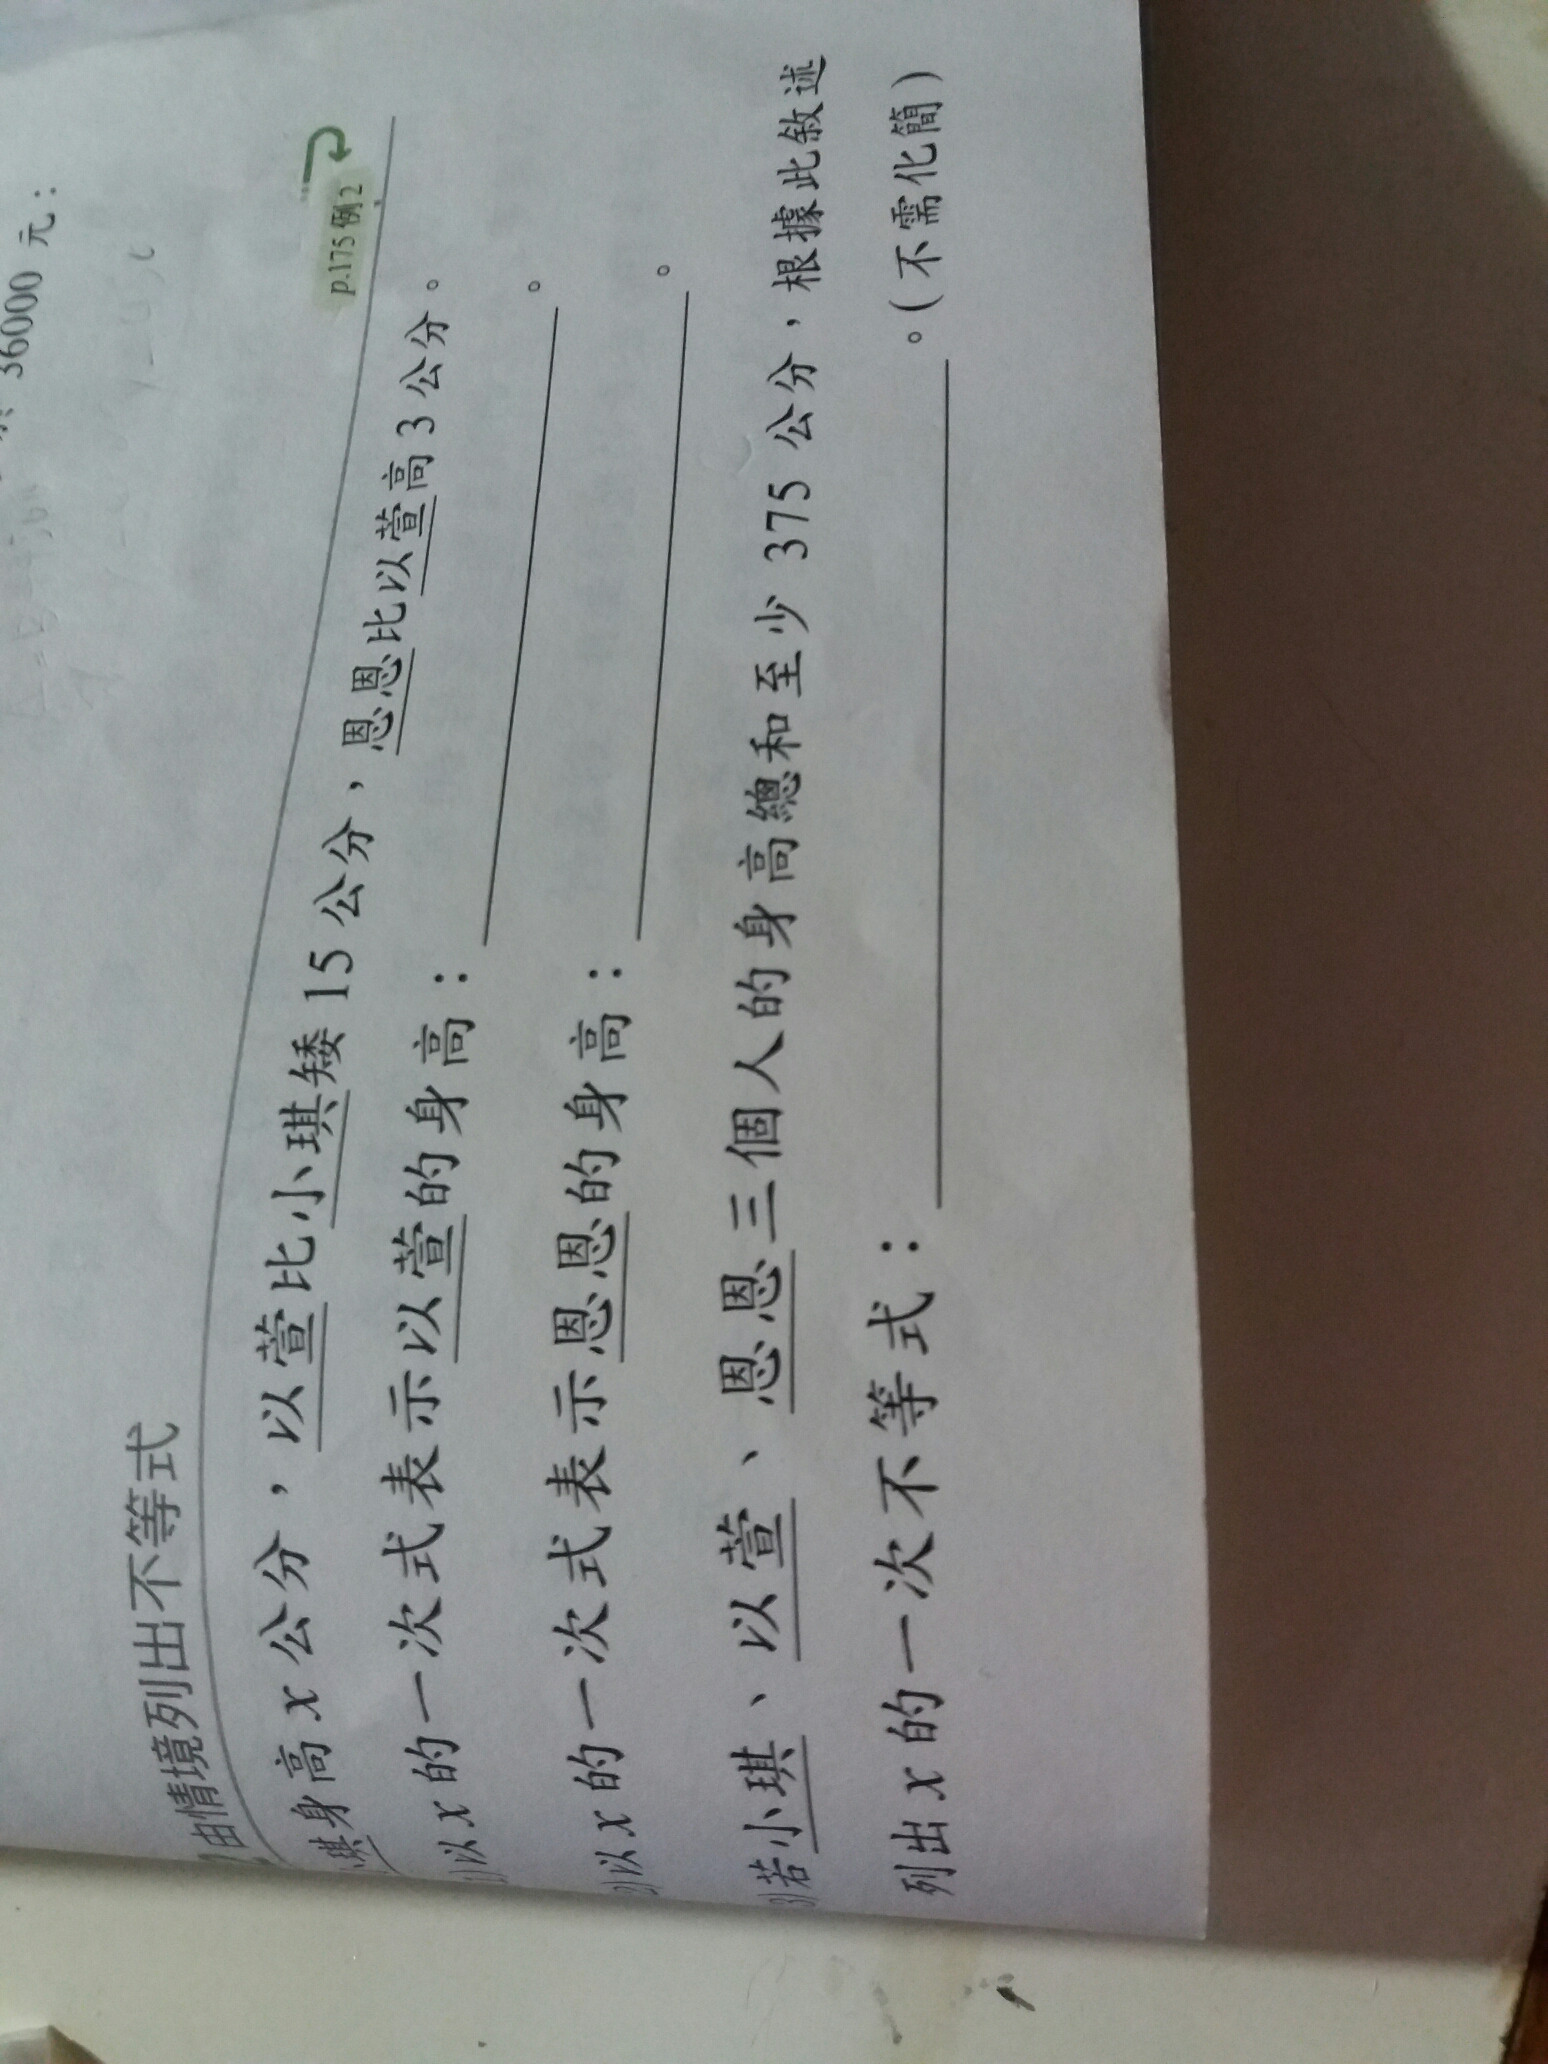 36000 元：
由情境列出不等式
p.175 例 2
琪身高 x 公分，以萱比小琪矮 15 公分，恩恩比以萱高 3 公分。
(1)以 x 的一次式表示以萱的身高：。
(2)以 x 的一次式表示恩恩的身高：。
(3)若小琪、以萱、恩恩三個人的身高總和至少 375 公分，根據此敘述
列出 x 的一次不等式：。(不需化簡)